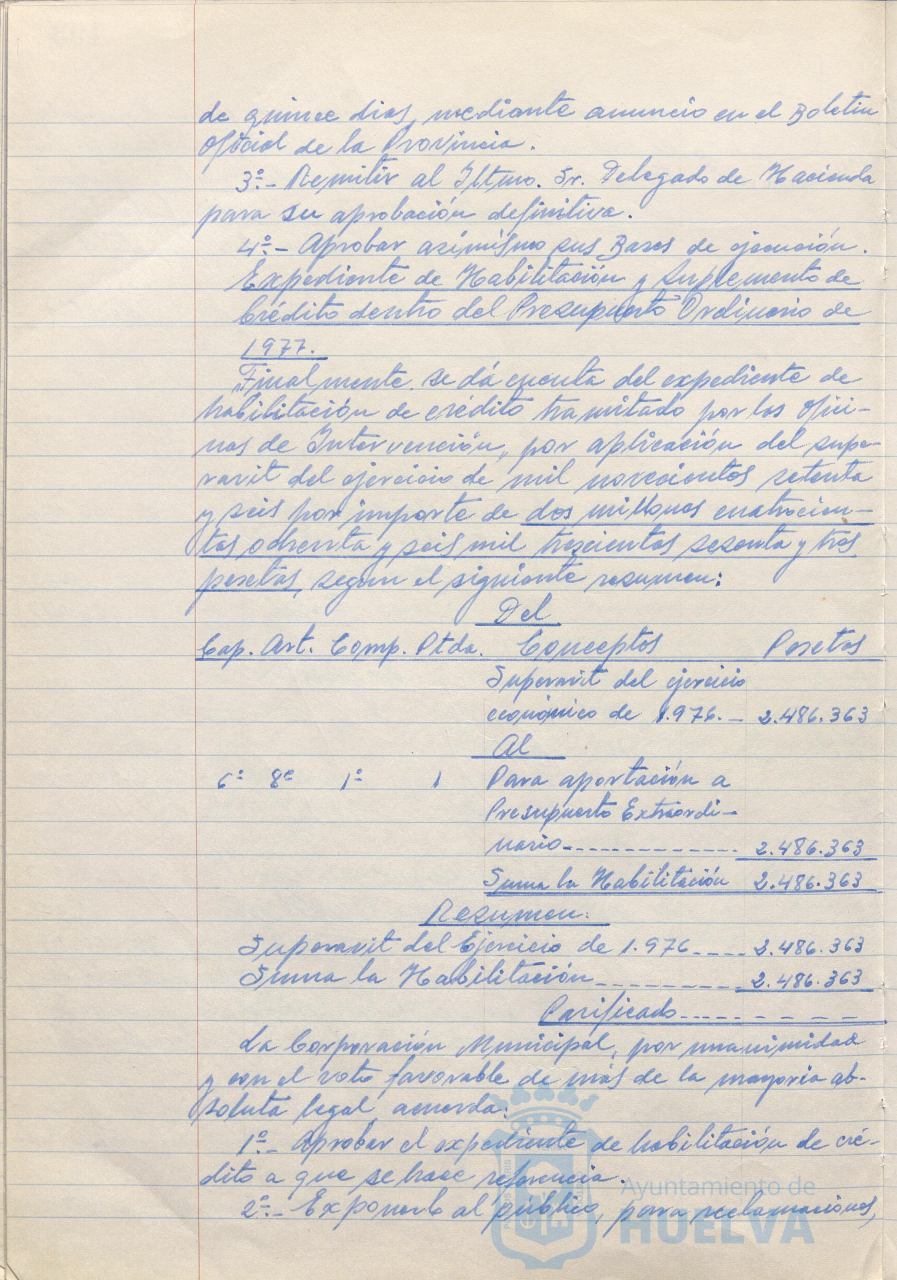 de quince dias, mediante anuncio en el Boletin
Oficial de la Provincia.
3º.- Remitir al Iltmo. Sr. Delegado de Hacienda
para su aprobación definitiva.
4º.- Aprobar asimismo sus Bases de ejecución.
Expediente de Habilitación y Suplemento de
Crédito dentro del Presupuesto Ordinario de
1977.
Finalmente se dá cuenta del expediente de
habilitación de crédito tramitado por las Ofici-
nas de Intervención, por aplicación del supe-
ravit del ejercicio de mil novecientos setenta
y seis por importe de dos millones cuatrocien-
tas ochenta y seis mil trescientas sesenta y tres
pesetas, segun el siguiente resumen:
Del
Cap. Art. Comp. Ptda. Conceptos Pesetas
Superavit del ejercicio
económico de 1.976.- 2.486.363
Al
6º 8º 1º 1 Para aportación a
Presupuesto Extraordi-
nario.------------- 2.486.363
Suma la Habilitación 2.486.363
Resumen:
Superavit del Ejercicio de 1.976 ---- 2.486.363
Suma la Habilitación --------- 2.486.363
La Corporación Municipal, por unanimidad
y con el voto favorable de más de la mayoria ab-
soluta legal, acuerda:
1º.- Aprobar el expediente de habilitación de cré-
dito a que se hace referencia.
2º.- Exponerlo al público, para reclamaciones,
Ayuntamiento de
HUELVA